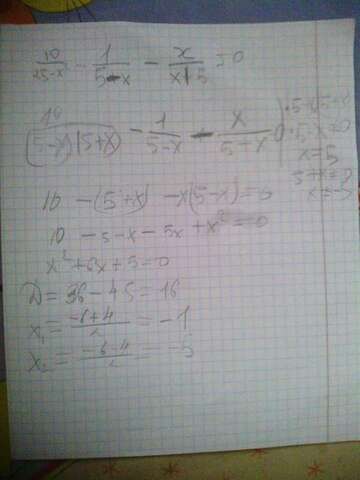 10/25-x² - 1/5-x - x/x+5 = 0
10/(5-x)(5+x) - 1/5-x - x/5+x = 0 | 5-x=0
x=5
5+x=0
x=-5
10 - (5+x) - x(5-x) = 0
10 - 5 - x - 5x + x² = 0
x² + 6x + 5 = 0
D = 36 - 4·5 = 16
x₁ = -6+4/2 = -1
x₂ = -6-4/2 = -5